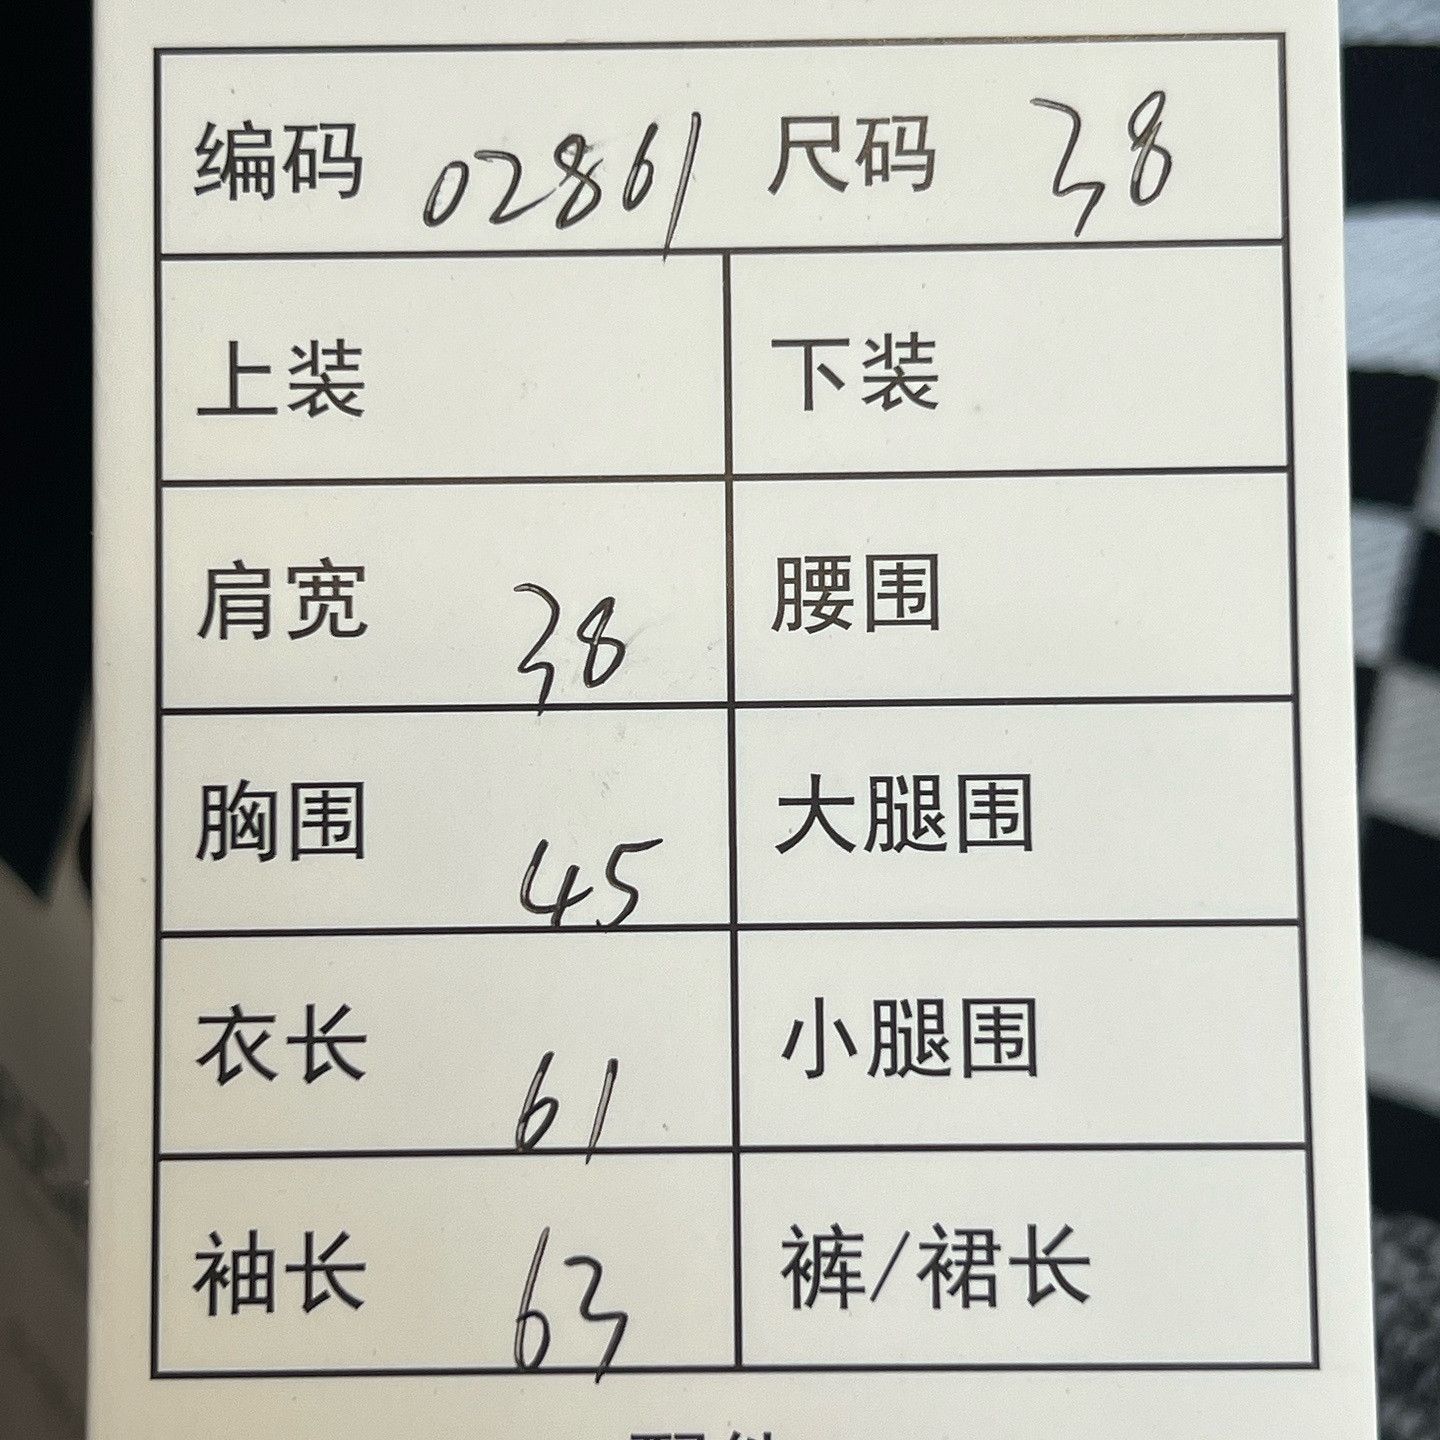 编码 02861 尺码 38
上装 下装
肩宽 38 腰围
胸围 45 大腿围
衣长 61 小腿围
袖长 63 裤/裙长